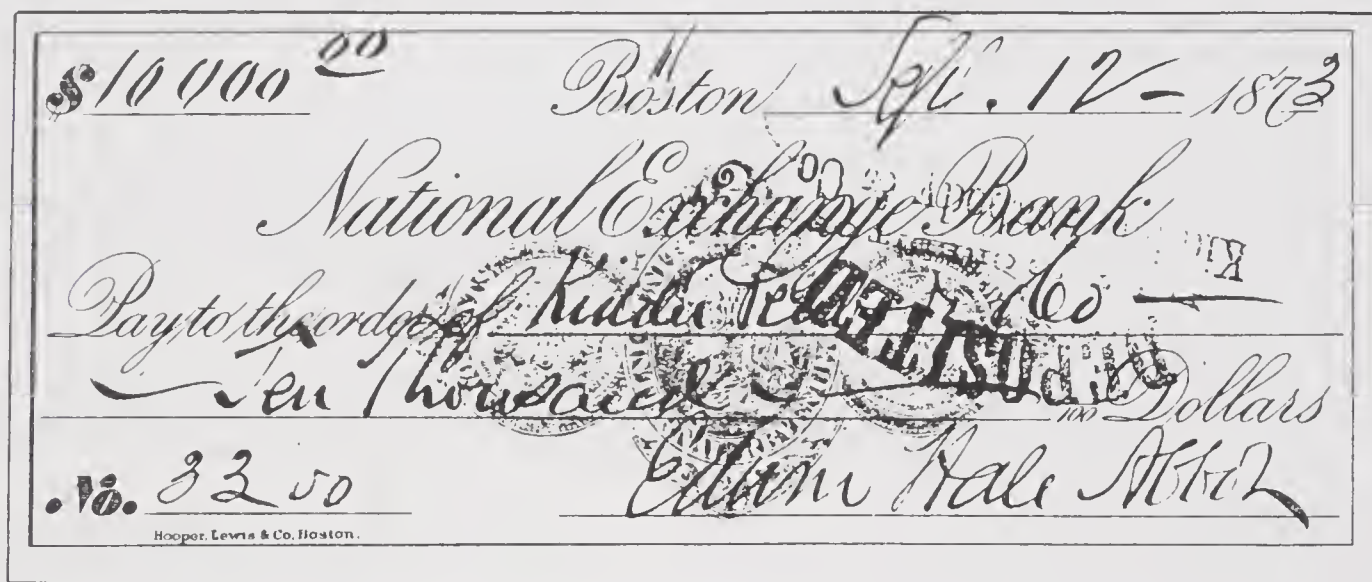 $ 10 000 00 Boston Sept. 12 - 1873
National Exchange Bank
Pay to the order of Kidder Peabody & Co
Ten Thousand 100 Dollars
No. 3250 Edwin Hale Abbot
Hooper, Lewis & Co, Boston.